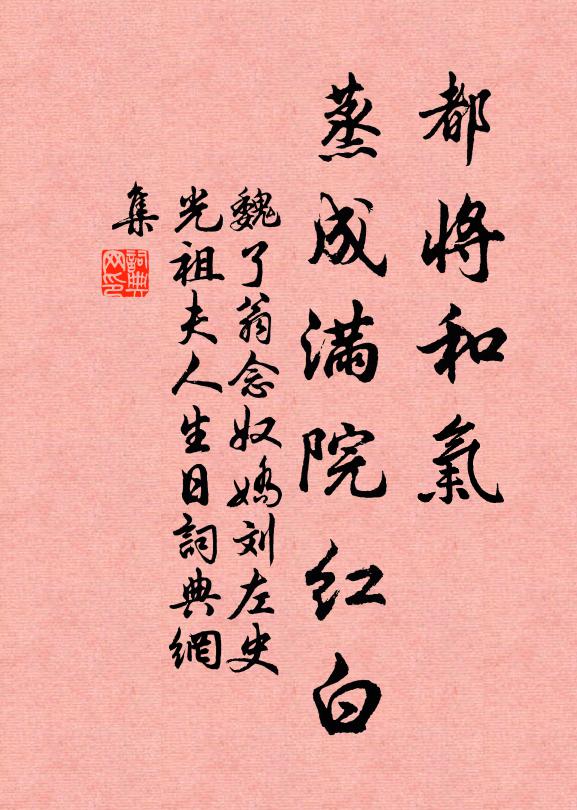 都將和氣
蒸成滿院紅白
魏了翁念奴嬌刘左史
光祖夫人生日詞典網
集
詞典
网印